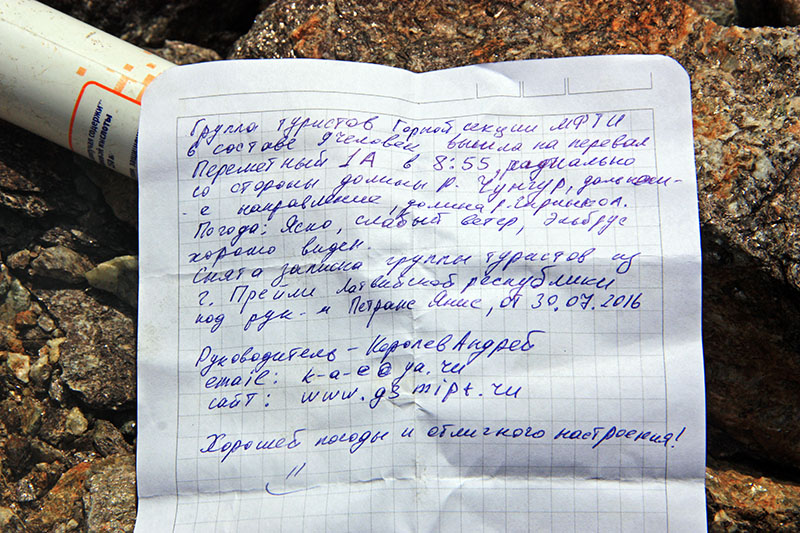 Группа туристов Горной секции МФТИ
в составе 9 человек вышла на перевал
Переметный 1А в 8:55, радиально
со стороны долины р. Чунгур,
направление, долина р.
Погода: Ясно, слабый ветер, Эльбрус
хорошо виден.
Снята записка группы туристов из
г. Прейли Латвийской республики
под рук-м Петранс Янис, от 30.07.2016
Руководитель - Королев Андрей
email: k-a-e@ya.ru
сайт: www.gsmipt.ru
Хорошей погоды и отличного настроения!
кислоты